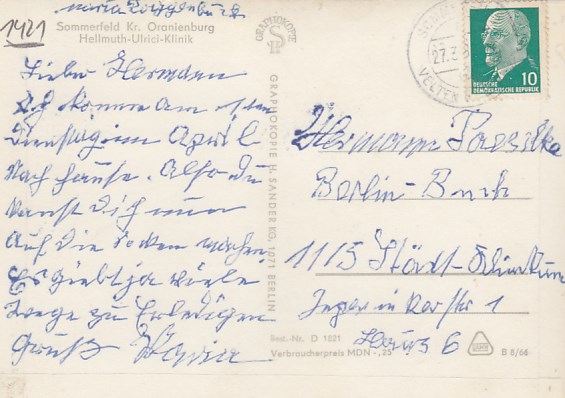 Maria
1421
Sommerfeld Kr. Oranienburg
Hellmuth-Ulrici-Klinik
Lieber Hermann
Ich komme am
Dienstag im April
nach hause. Also du
kanst Dich nun
auf die Socken machen
Es giebt ja viele
Wege zu Erledigen
Gruß Maria
GRAPHOKOPIE
GRAPHOKOPIE H. SANDER KG, 1071 BERLIN
27.3
VELTEN
10
DEUTSCHE
DEMOKRATISCHE REPUBLIK
Hermann
Berlin-Buch
1115 Städt-Klinikum
1
Haus 6
Best.-Nr. D 1521
Verbraucherpreis MDN -,25
B 8/66